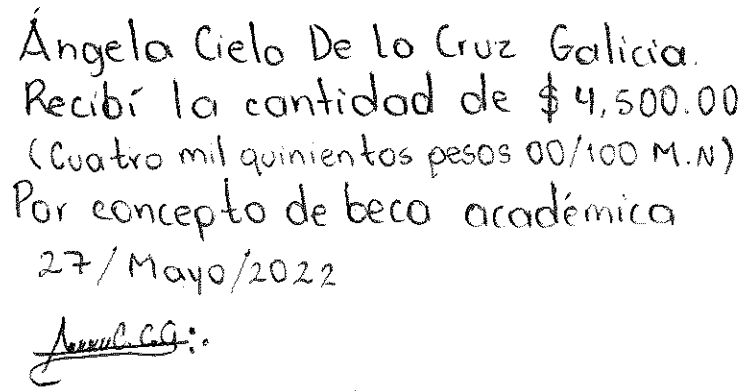 Ángela Cielo De La Cruz Galicia.
Recibí la cantidad de $4,500.00
(Cuatro mil quinientos pesos 00/100 M.N)
Por concepto de beca académica
27/Mayo/2022